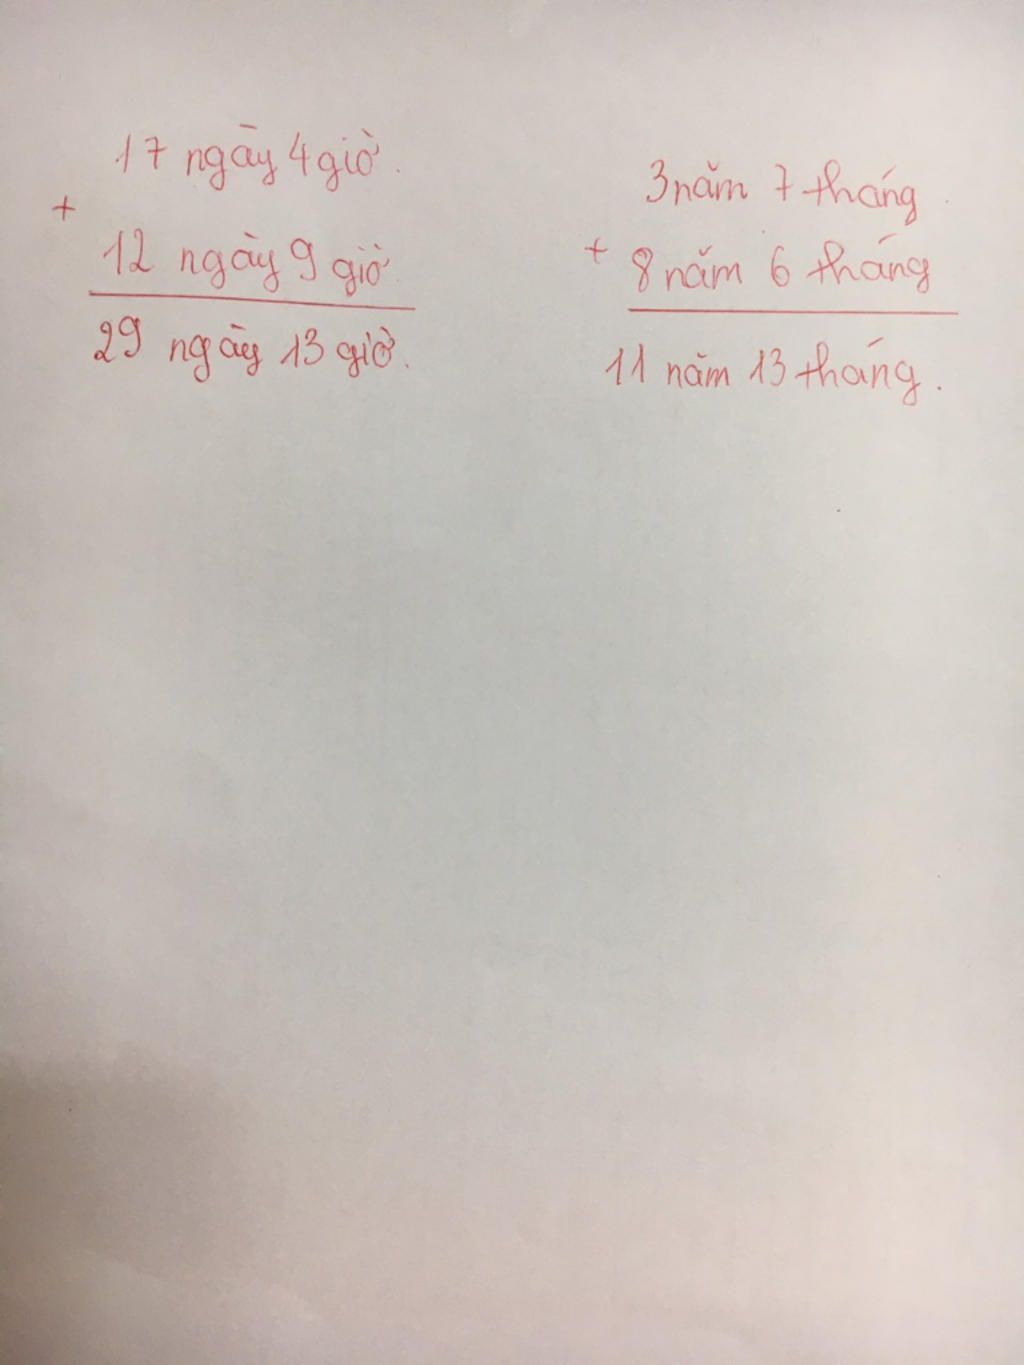 17 ngày 4 giờ.
+
12 ngày 9 giờ
29 ngày 13 giờ.
3 năm 7 tháng
+
8 năm 6 tháng
11 năm 13 tháng.